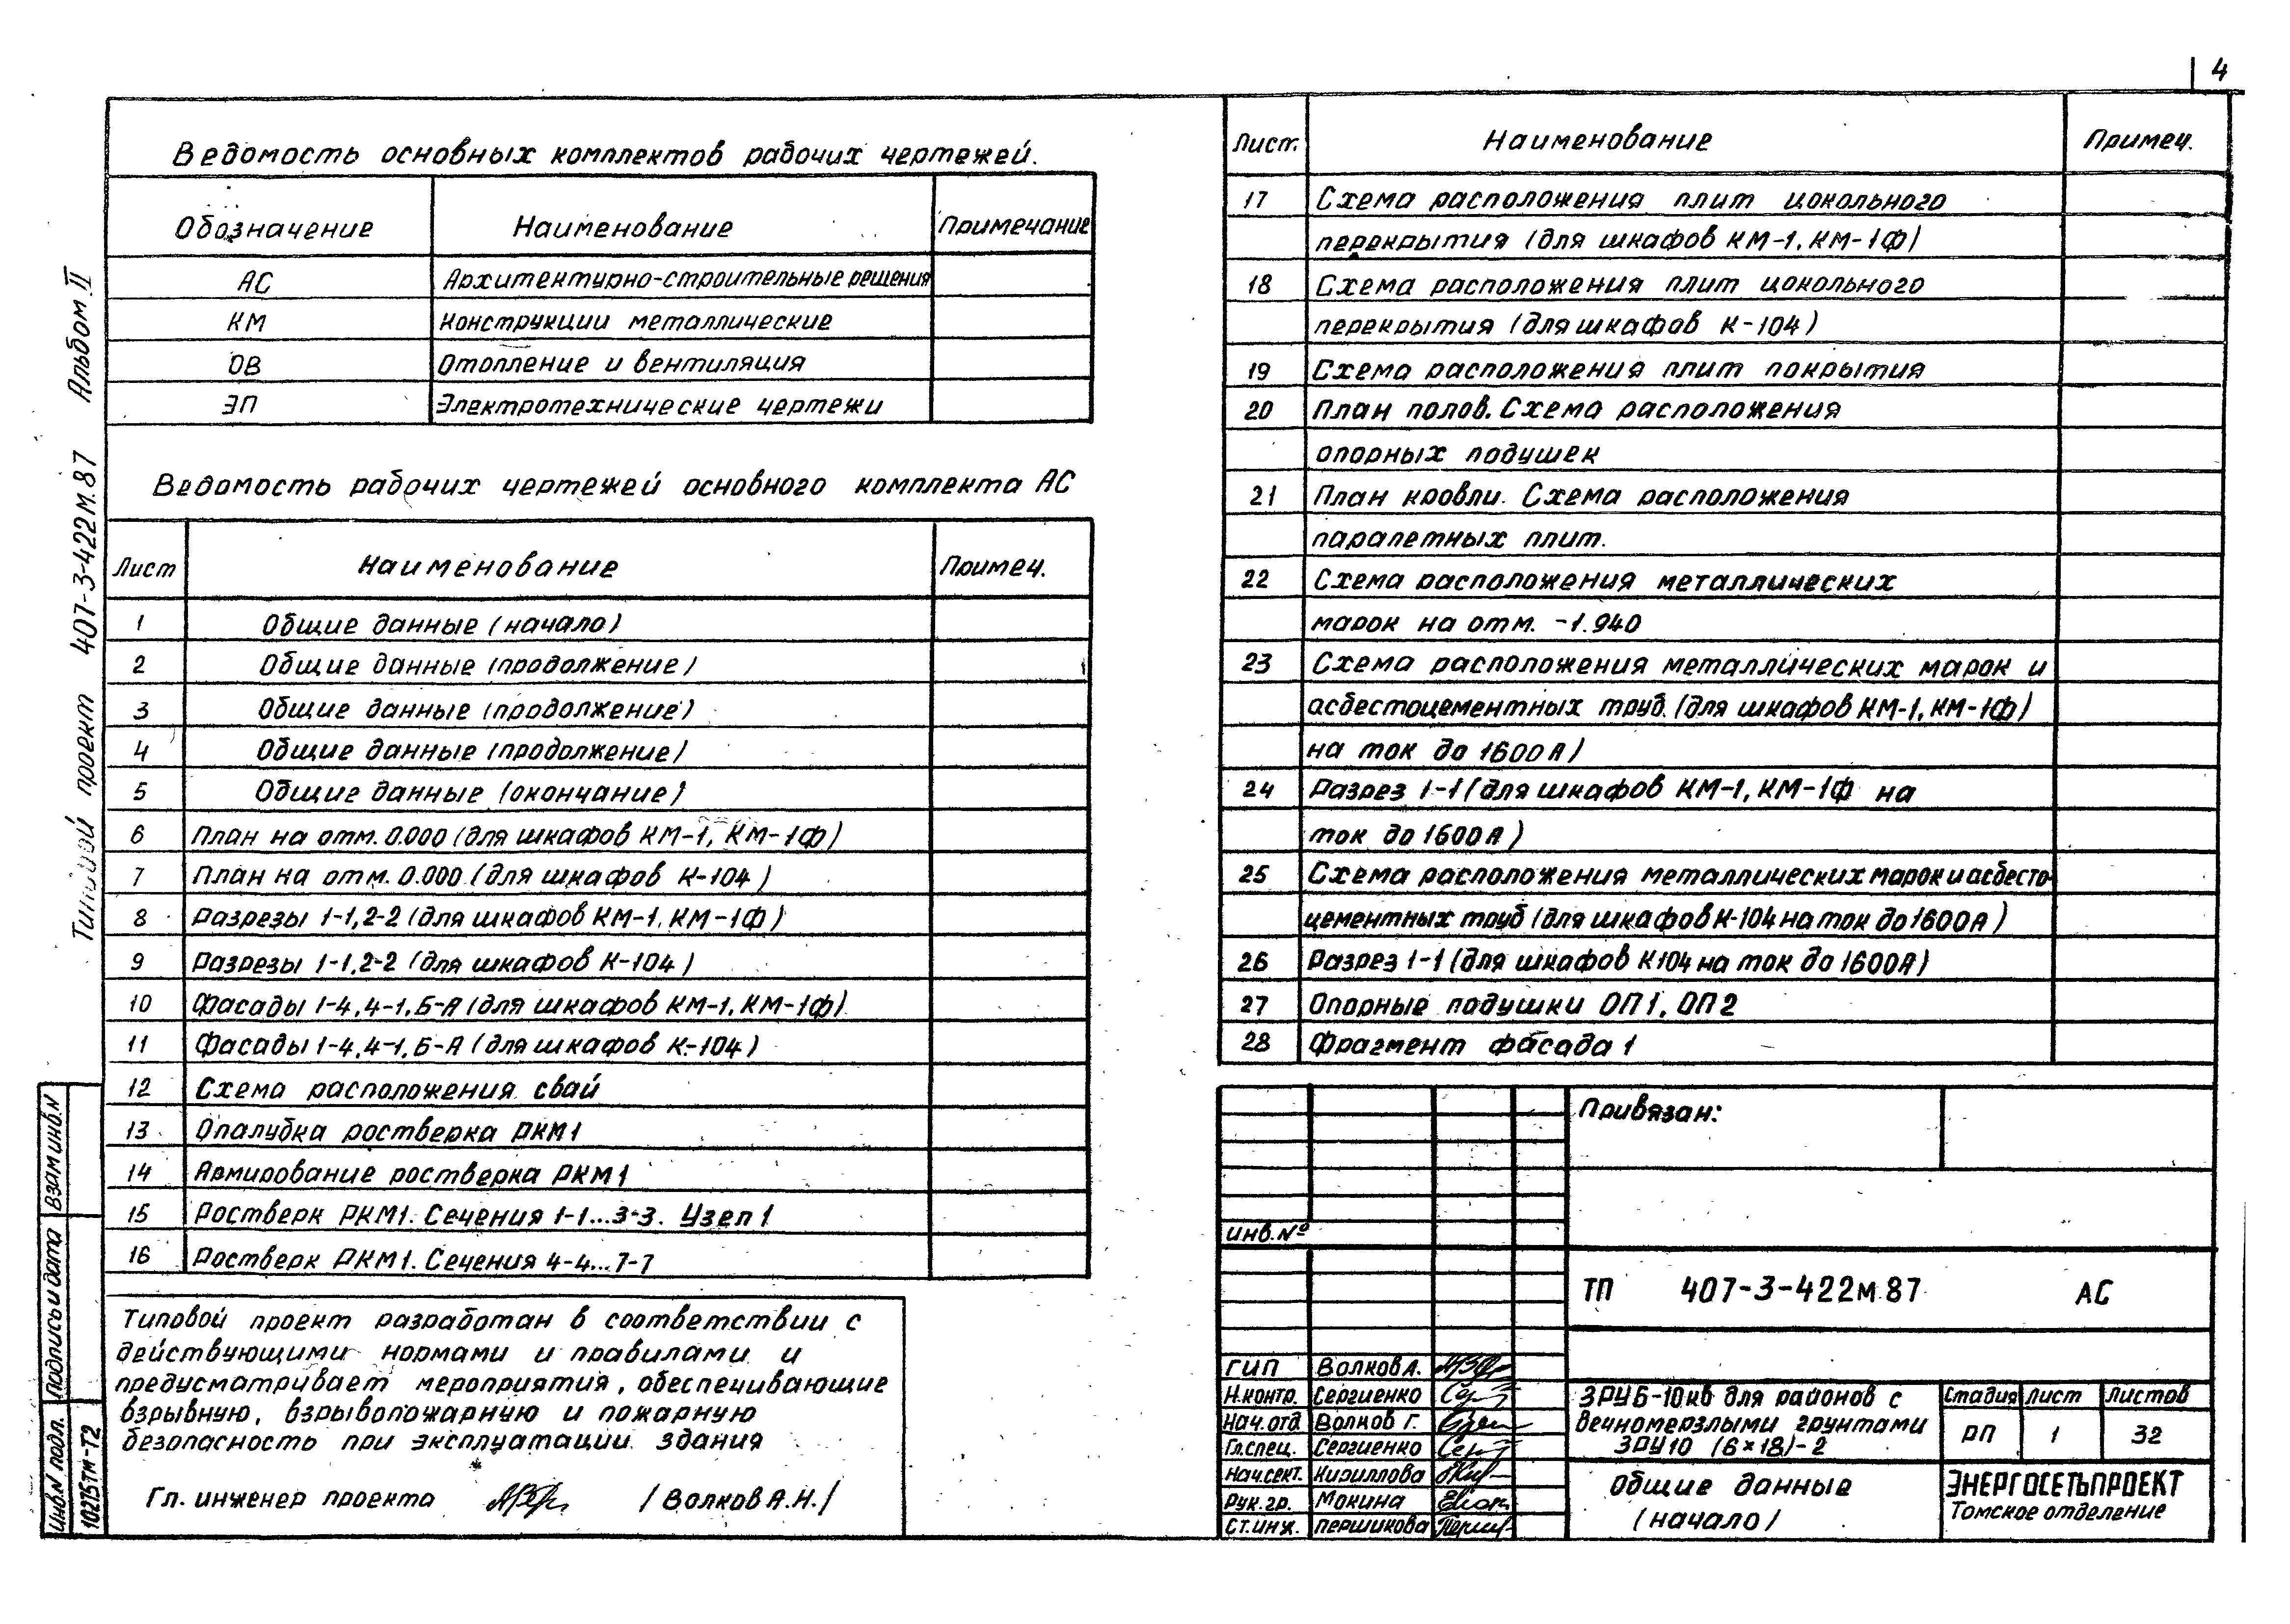 4
Ведомость основных комплектов рабочих чертежей.
Обозначение Наименование Примечание
АС Архитектурно-строительные решения
КМ Конструкции металлические
ОВ Отопление и вентиляция
ЭП Электротехнические чертежи
Ведомость рабочих чертежей основного комплекта АС
Лист Наименование Примеч.
1 Общие данные (начало)
2 Общие данные (продолжение)
3 Общие данные (продолжение)
4 Общие данные (продолжение)
5 Общие данные (окончание)
6 План на отм. 0.000 (для шкафов КМ-1, КМ-1Ф)
7 План на отм. 0.000 (для шкафов К-104)
8 Разрезы 1-1, 2-2 (для шкафов КМ-1, КМ-1Ф)
9 Разрезы 1-1, 2-2 (для шкафов К-104)
10 Фасады 1-4, 4-1, Б-А (для шкафов КМ-1, КМ-1Ф)
11 Фасады 1-4, 4-1, Б-А (для шкафов К-104)
12 Схема расположения свай
13 Опалубка ростверка РКМ1
14 Армирование ростверка РКМ1
15 Ростверк РКМ1. Сечения 1-1...3-3. Узел 1
16 Ростверк РКМ1. Сечения 4-4...7-7
Типовой проект разработан в соответствии с
действующими нормами и правилами и
предусматривает мероприятия, обеспечивающие
взрывную, взрывопожарную и пожарную
безопасность при эксплуатации здания
Гл. инженер проекта /Волков А.Н./
Лист. Наименование Примеч.
17 Схема расположения плит цокольного
перекрытия (для шкафов КМ-1, КМ-1Ф)
18 Схема расположения плит цокольного
перекрытия (для шкафов К-104)
19 Схема расположения плит покрытия
20 План полов. Схема расположения
опорных подушек
21 План кровли. Схема расположения
парапетных плит.
22 Схема расположения металлических
марок на отм. -1.940
23 Схема расположения металлических марок и
асбестоцементных труб. (для шкафов КМ-1, КМ-1Ф)
на ток до 1600 А)
24 Разрез 1-1 (для шкафов КМ-1, КМ-1Ф на
ток до 1600 А)
25 Схема расположения металлических марок и асбесто-
цементных труб (для шкафов К-104 на ток до 1600А)
26 Разрез 1-1 (для шкафов К104 на ток до 1600А)
27 Опорные подушки ОП1, ОП2
28 Фрагмент фасада 1
Привязан:
Инв. №
ТП 407-3-422м.87 АС
ГИП Волков А.
Н.контр. Сергиенко
Нач.отд. Волков Г.
Гл.спец. Сергиенко
Нач.сект. Кириллова
Рук. гр. Мокина
Ст.инж. Першикова
ЗРУ6-10кв для районов с
вечномерзлыми грунтами
ЗРУ10 (6×18)-2
Стадия Лист Листов
РП 1 32
Общие данные
(начало)
ЭНЕРГОСЕТЬПРОЕКТ
Томское отделение
Типовой проект 407-3-422м.87 Альбом II
Инв.N подл. Подпись и дата Взам.инв.N
10215тм-Т2